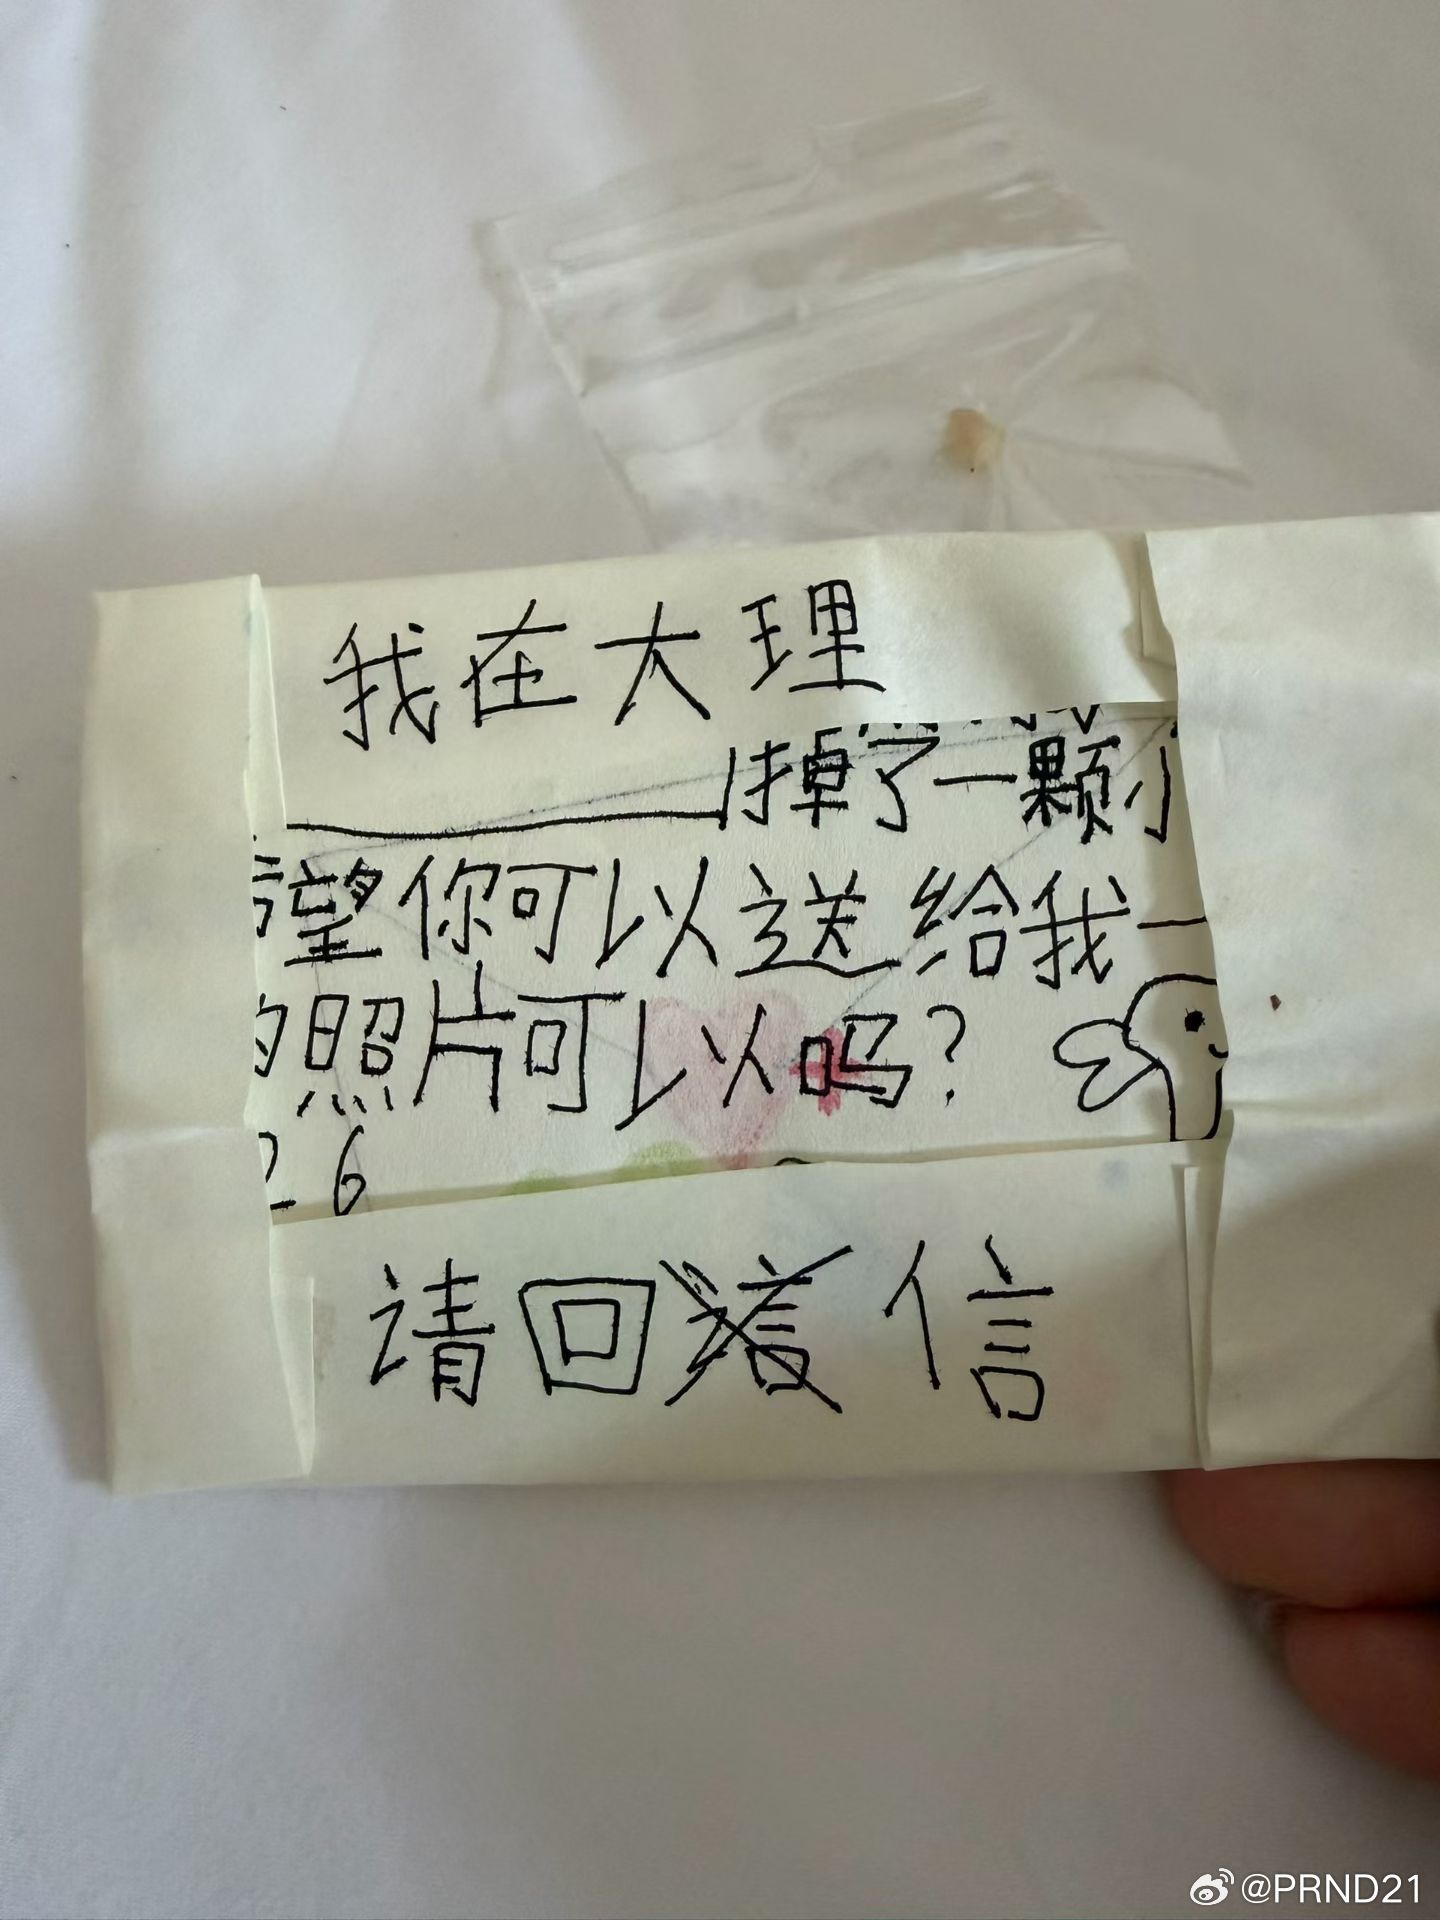 我在大理
掉了一颗小
望你可以送给我一
的照片可以吗？
26
请回信
@PRND21